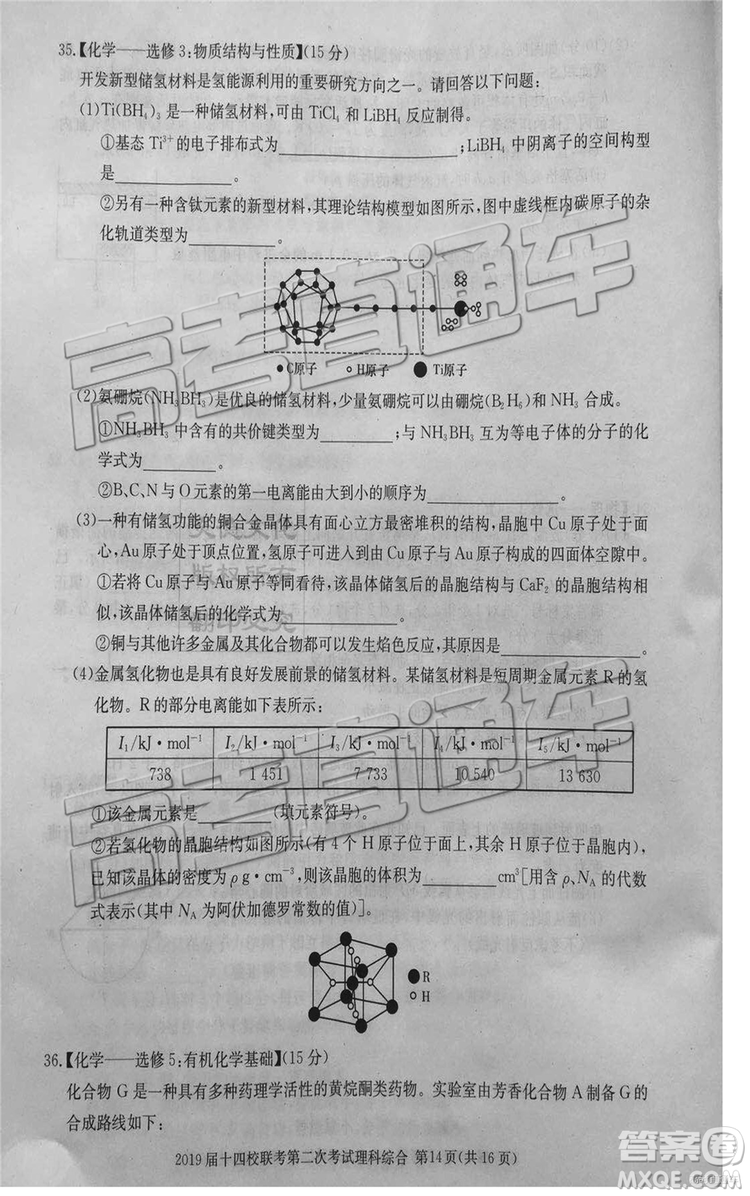 35.【化学——选修3:物质结构与性质】(15分)
开发新型储氢材料是氢能源利用的重要研究方向之一。请回答以下问题:
(1)Ti(BH₄)₃是一种储氢材料,可由TiCl₄和LiBH₄反应制得。
①基态Ti³⁺的电子排布式为__________;LiBH₄中阴离子的空间构型
是__________。
②另有一种含钛元素的新型材料,其理论结构模型如图所示,图中虚线框内碳原子的杂
化轨道类型为__________。
●C原子 ○H原子 ●Ti原子
(2)氨硼烷(NH₃BH₃)是优良的储氢材料,少量氨硼烷可以由硼烷(B₂H₆)和NH₃合成。
①NH₃BH₃中含有的共价键类型为__________;与NH₃BH₃互为等电子体的分子的化
学式为__________。
②B、C、N与O元素的第一电离能由大到小的顺序为__________。
(3)一种有储氢功能的铜合金晶体具有面心立方最密堆积的结构,晶胞中Cu原子处于面
心,Au原子处于顶点位置,氢原子可进入到由Cu原子与Au原子构成的四面体空隙中。
①若将Cu原子与Au原子等同看待,该晶体储氢后的晶胞结构与CaF₂的晶胞结构相
似,该晶体储氢后的化学式为__________。
②铜与其他许多金属及其化合物都可以发生焰色反应,其原因是__________。
(4)金属氢化物也是具有良好发展前景的储氢材料。某储氢材料是短周期金属元素R的氢
化物。R的部分电离能如下表所示:
I₁/kJ·mol⁻¹ I₂/kJ·mol⁻¹ I₃/kJ·mol⁻¹ I₄/kJ·mol⁻¹ I₅/kJ·mol⁻¹
738 1 451 7 733 10 540 13 630
①该金属元素是__________(填元素符号)。
②若氢化物的晶胞结构如图所示(有4个H原子位于面上,其余H原子位于晶胞内),
已知该晶体的密度为ρ g·cm⁻³,则该晶胞的体积为__________cm³[用含ρ、N_A的代数
式表示(其中N_A为阿伏加德罗常数的值)]。
R
H
36.【化学——选修5:有机化学基础】(15分)
化合物G是一种具有多种药理学活性的黄烷酮类药物。实验室由芳香化合物A制备G的
合成路线如下:
2019届十四校联考第二次考试理科综合 第14页(共16页)
高考直通车
高考直通车
版权所有
翻印必究
答案圈
MXQE.COM